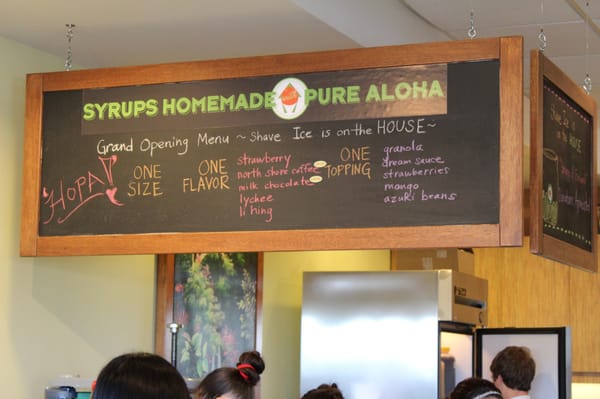 SYRUPS HOMEMADE PURE ALOHA
Grand Opening Menu ~ Shave Ice is on the HOUSE ~
'HOPA!
ONE SIZE
ONE FLAVOR
strawberry
north shore coffee
milk chocolate
lychee
li hing
ONE TOPPING
granola
dream sauce
strawberries
mango
azuki beans
Shave Ice
is on the
HOUSE!